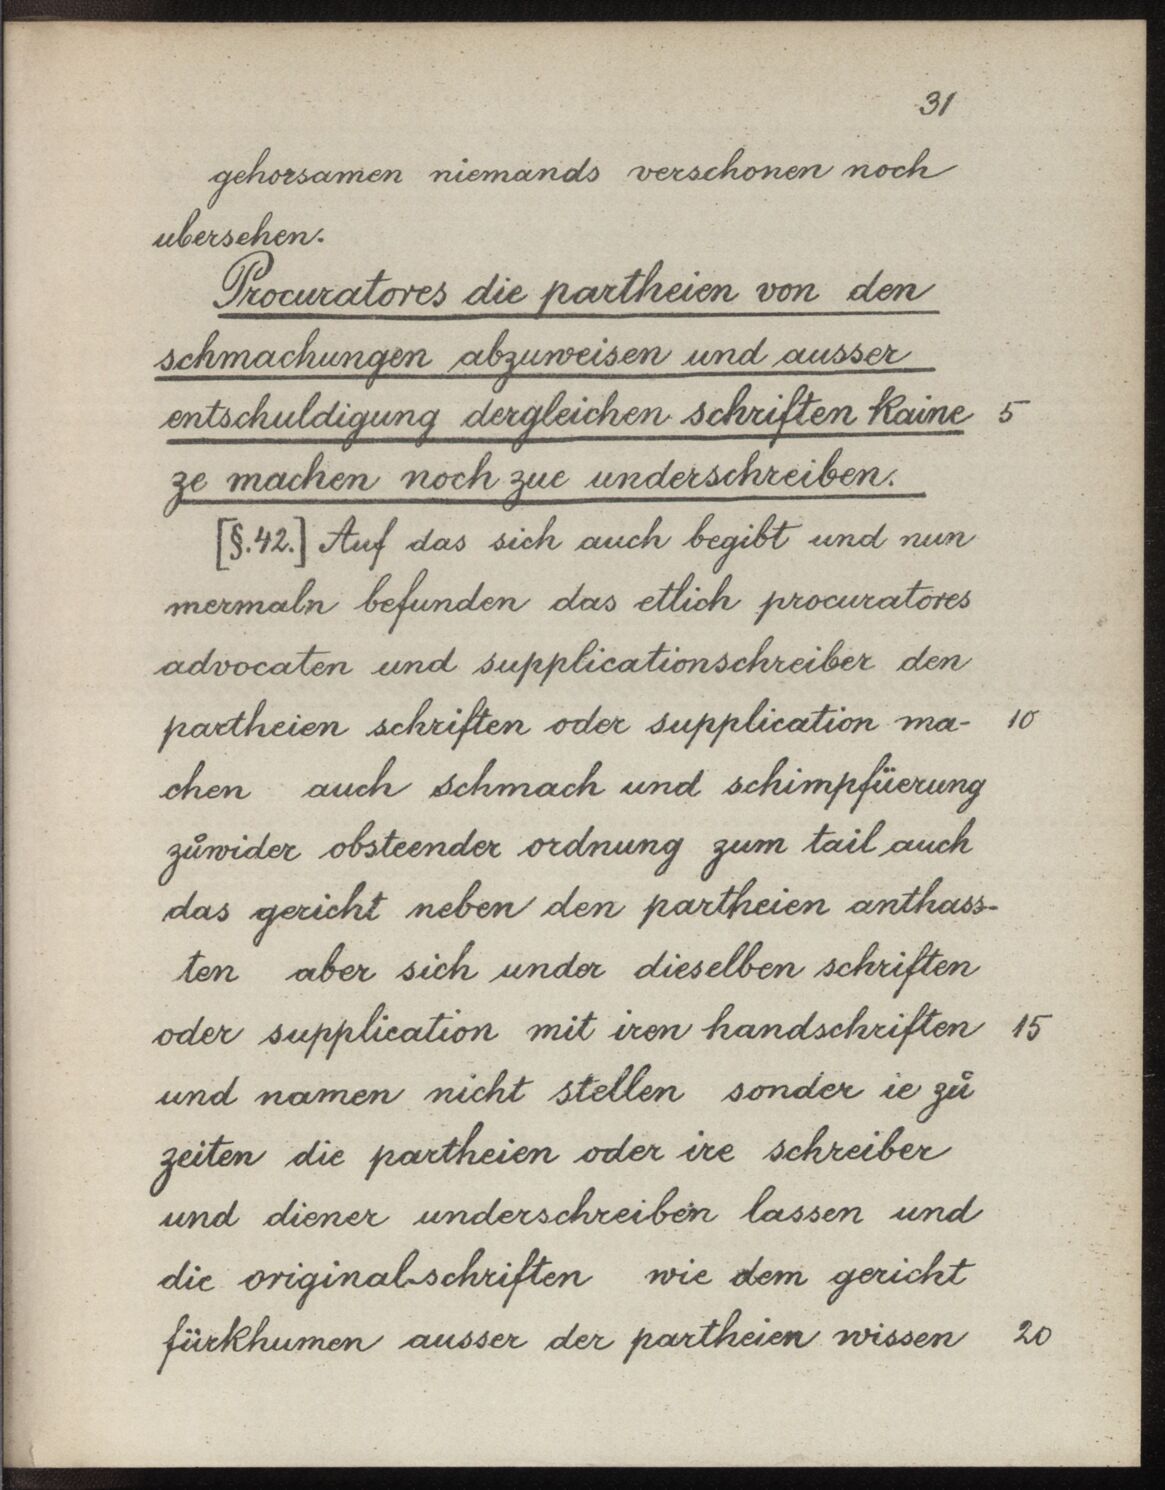 31
gehorsamen niemands verschonen noch
ubersehen.
Procuratores die partheien von den
schmachungen abzuweisen und ausser
entschuldigung dergleichen schriften kaine 5
ze machen noch zue underschreiben.
[§.42.] Auf das sich auch begibt und nun
mermaln befunden das etlich procuratores
advocaten und supplicationschreiber den
partheien schriften oder supplication ma- 10
chen auch schmach und schimpfüerung
zůwider obsteender ordnung zum tail auch
das gericht neben den partheien anthass-
ten aber sich under dieselben schriften
oder supplication mit iren handschriften 15
und namen nicht stellen sonder ie zů
zeiten die partheien oder ire schreiber
und diener underschreiben lassen und
die original-schriften wie dem gericht
fürkhumen ausser der partheien wissen 20